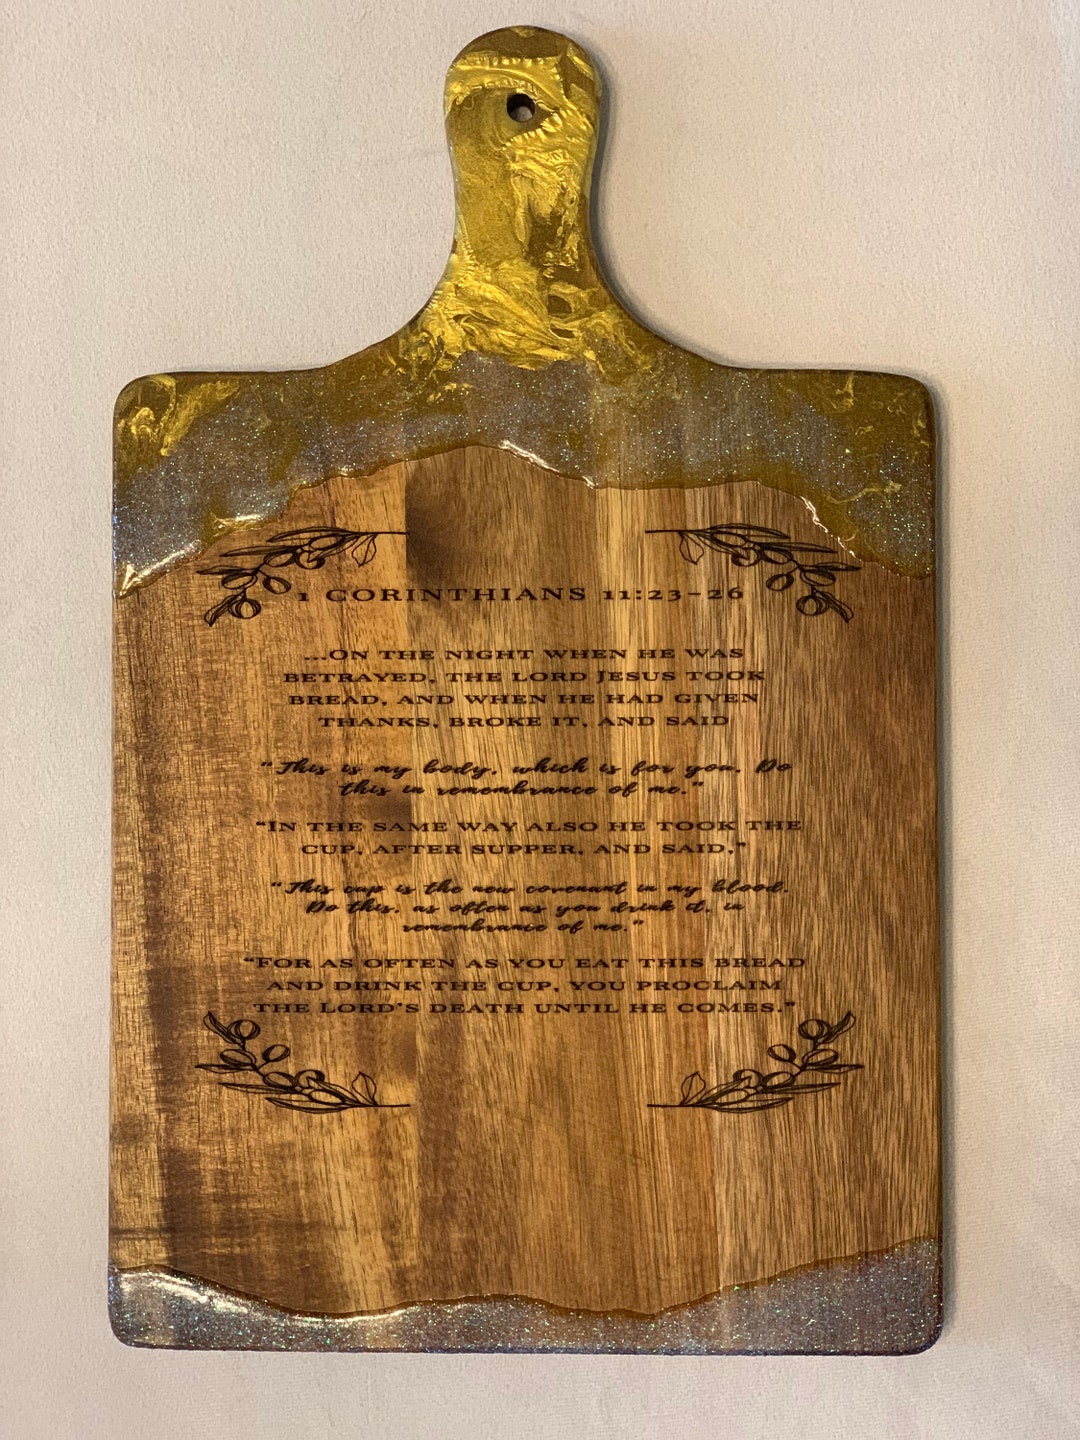 1 CORINTHIANS 11:23-26
...ON THE NIGHT WHEN HE WAS
BETRAYED, THE LORD JESUS TOOK
BREAD, AND WHEN HE HAD GIVEN
THANKS, BROKE IT, AND SAID
"This is my body, which is for you. Do
this in remembrance of me."
"IN THE SAME WAY ALSO HE TOOK THE
CUP, AFTER SUPPER, AND SAID,"
"This cup is the new covenant in my blood.
Do this, as often as you drink it, in
remembrance of me."
"FOR AS OFTEN AS YOU EAT THIS BREAD
AND DRINK THE CUP, YOU PROCLAIM
THE LORD'S DEATH UNTIL HE COMES."